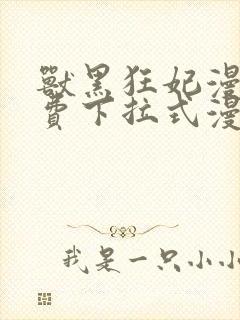 獸黑狂妃漫
費下拉式漫
我是一只小小